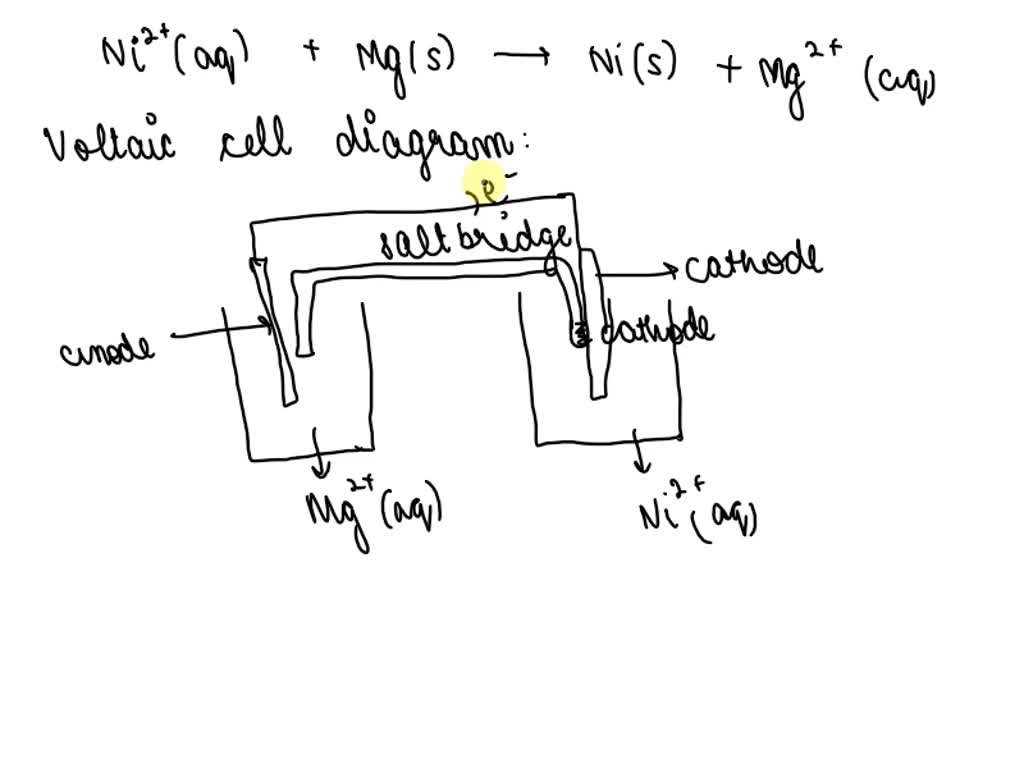 Ni²⁺(aq) + Mg(s) → Ni(s) + Mg²⁺(aq)
Voltaic cell diagram:
e⁻
salt bridge
cathode
cathode
anode
Mg²⁺(aq)
Ni²⁺(aq)